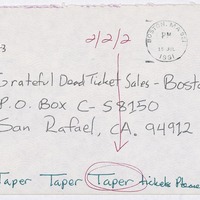 2/2/2
BOSTON, MA
PM
1991
3
Grateful Dead Ticket Sales - Bosto
P.O. Box C-S8150
San Rafael, CA. 94912
Taper Taper Taper tickets Please